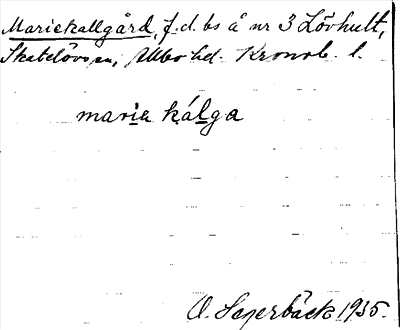 Mariekallgård, f.d. bs å nr 3 Lövhult,
Skatelövs sn, Allbo hd. Kronob. l.
maria kálga
O. Sagerbäck 1935.